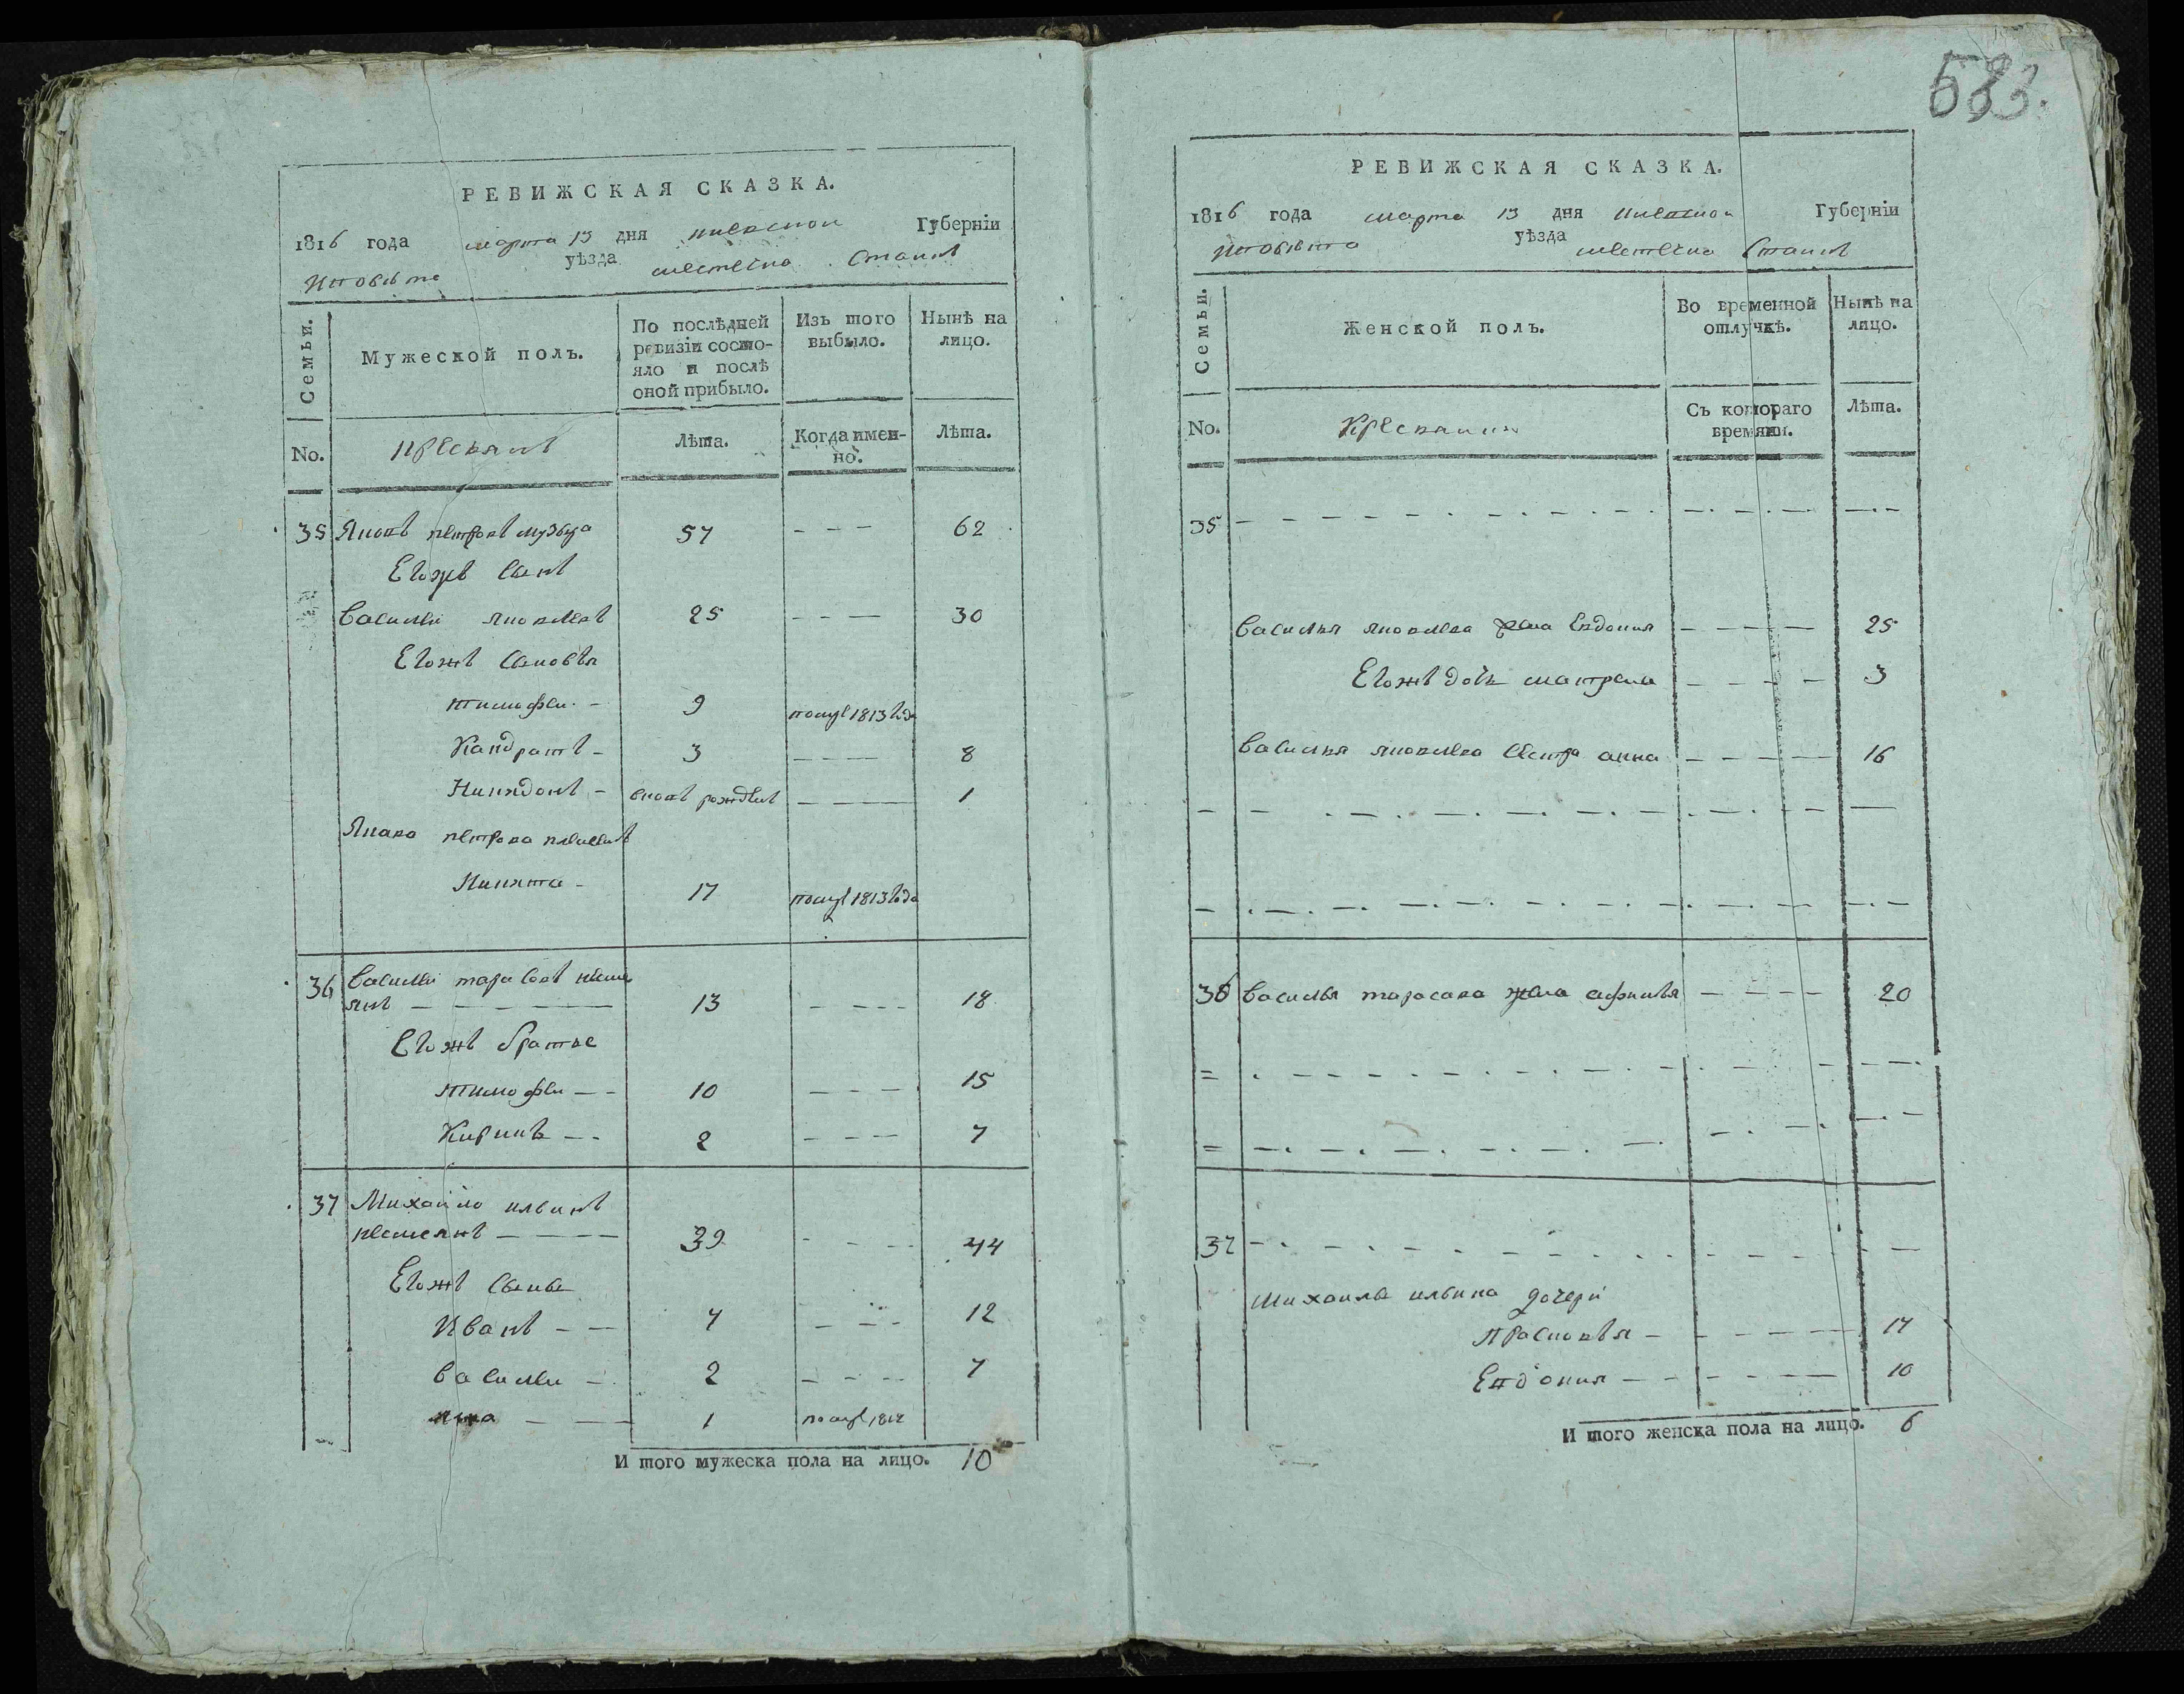 583.
РЕВИЖСКАЯ СКАЗКА.
1816 года марта 13 дня киевской Губерніи
уѣзда местечка Ставкъ
Семьи.
Мужеской полъ.
По послѣдней ревизіи состояло и послѣ оной прибыло.
Изъ того выбыло.
Нынѣ на лицо.
No.
Лѣта.
Когда именно.
Лѣта.
35 Яковъ петровъ 57 - - - 62
Егожъ Сынъ
Василеи яковлевъ 25 - - - 30
Егожъ Сыновья
тимофеи - 9 помре 1813 года
Кандратъ - 3 - - - - 8
вновь рожденъ - - - - 1
Якова петрова племянникъ
Никита - 17 помре 1813 года
36 Василеи тарасовъ
13 - - - - 18
Егожъ братье
тимофеи - - 10 - - - 15
Кирикъ - - 2 - - - 7
37 Михаило ильинъ
39 - - - - 44
Егожъ Сынове
Иванъ - - 7 - - - 12
василеи - 2 - - - 7
1 помре 1812
И того мужеска пола на лицо. 10
РЕВИЖСКАЯ СКАЗКА.
1816 года марта 13 дня киевской Губерніи
уѣзда местечка Ставкъ
Семьи.
Женской полъ.
Во временной отлучкѣ.
Нынѣ на лицо.
No.
Съ котораго времяни.
Лѣта.
35
Василья яковлева жена Евдокия - - - - 25
Егожъ дочь матрена - - - - 3
Василья яковлева Сестра анна - - - - 16
36 Василья тарасова жена - - - - 20
37
Михаила ильина дочери
Прасковья - - - - - 17
Евдокия - - - - - 10
И того женска пола на лицо. 6